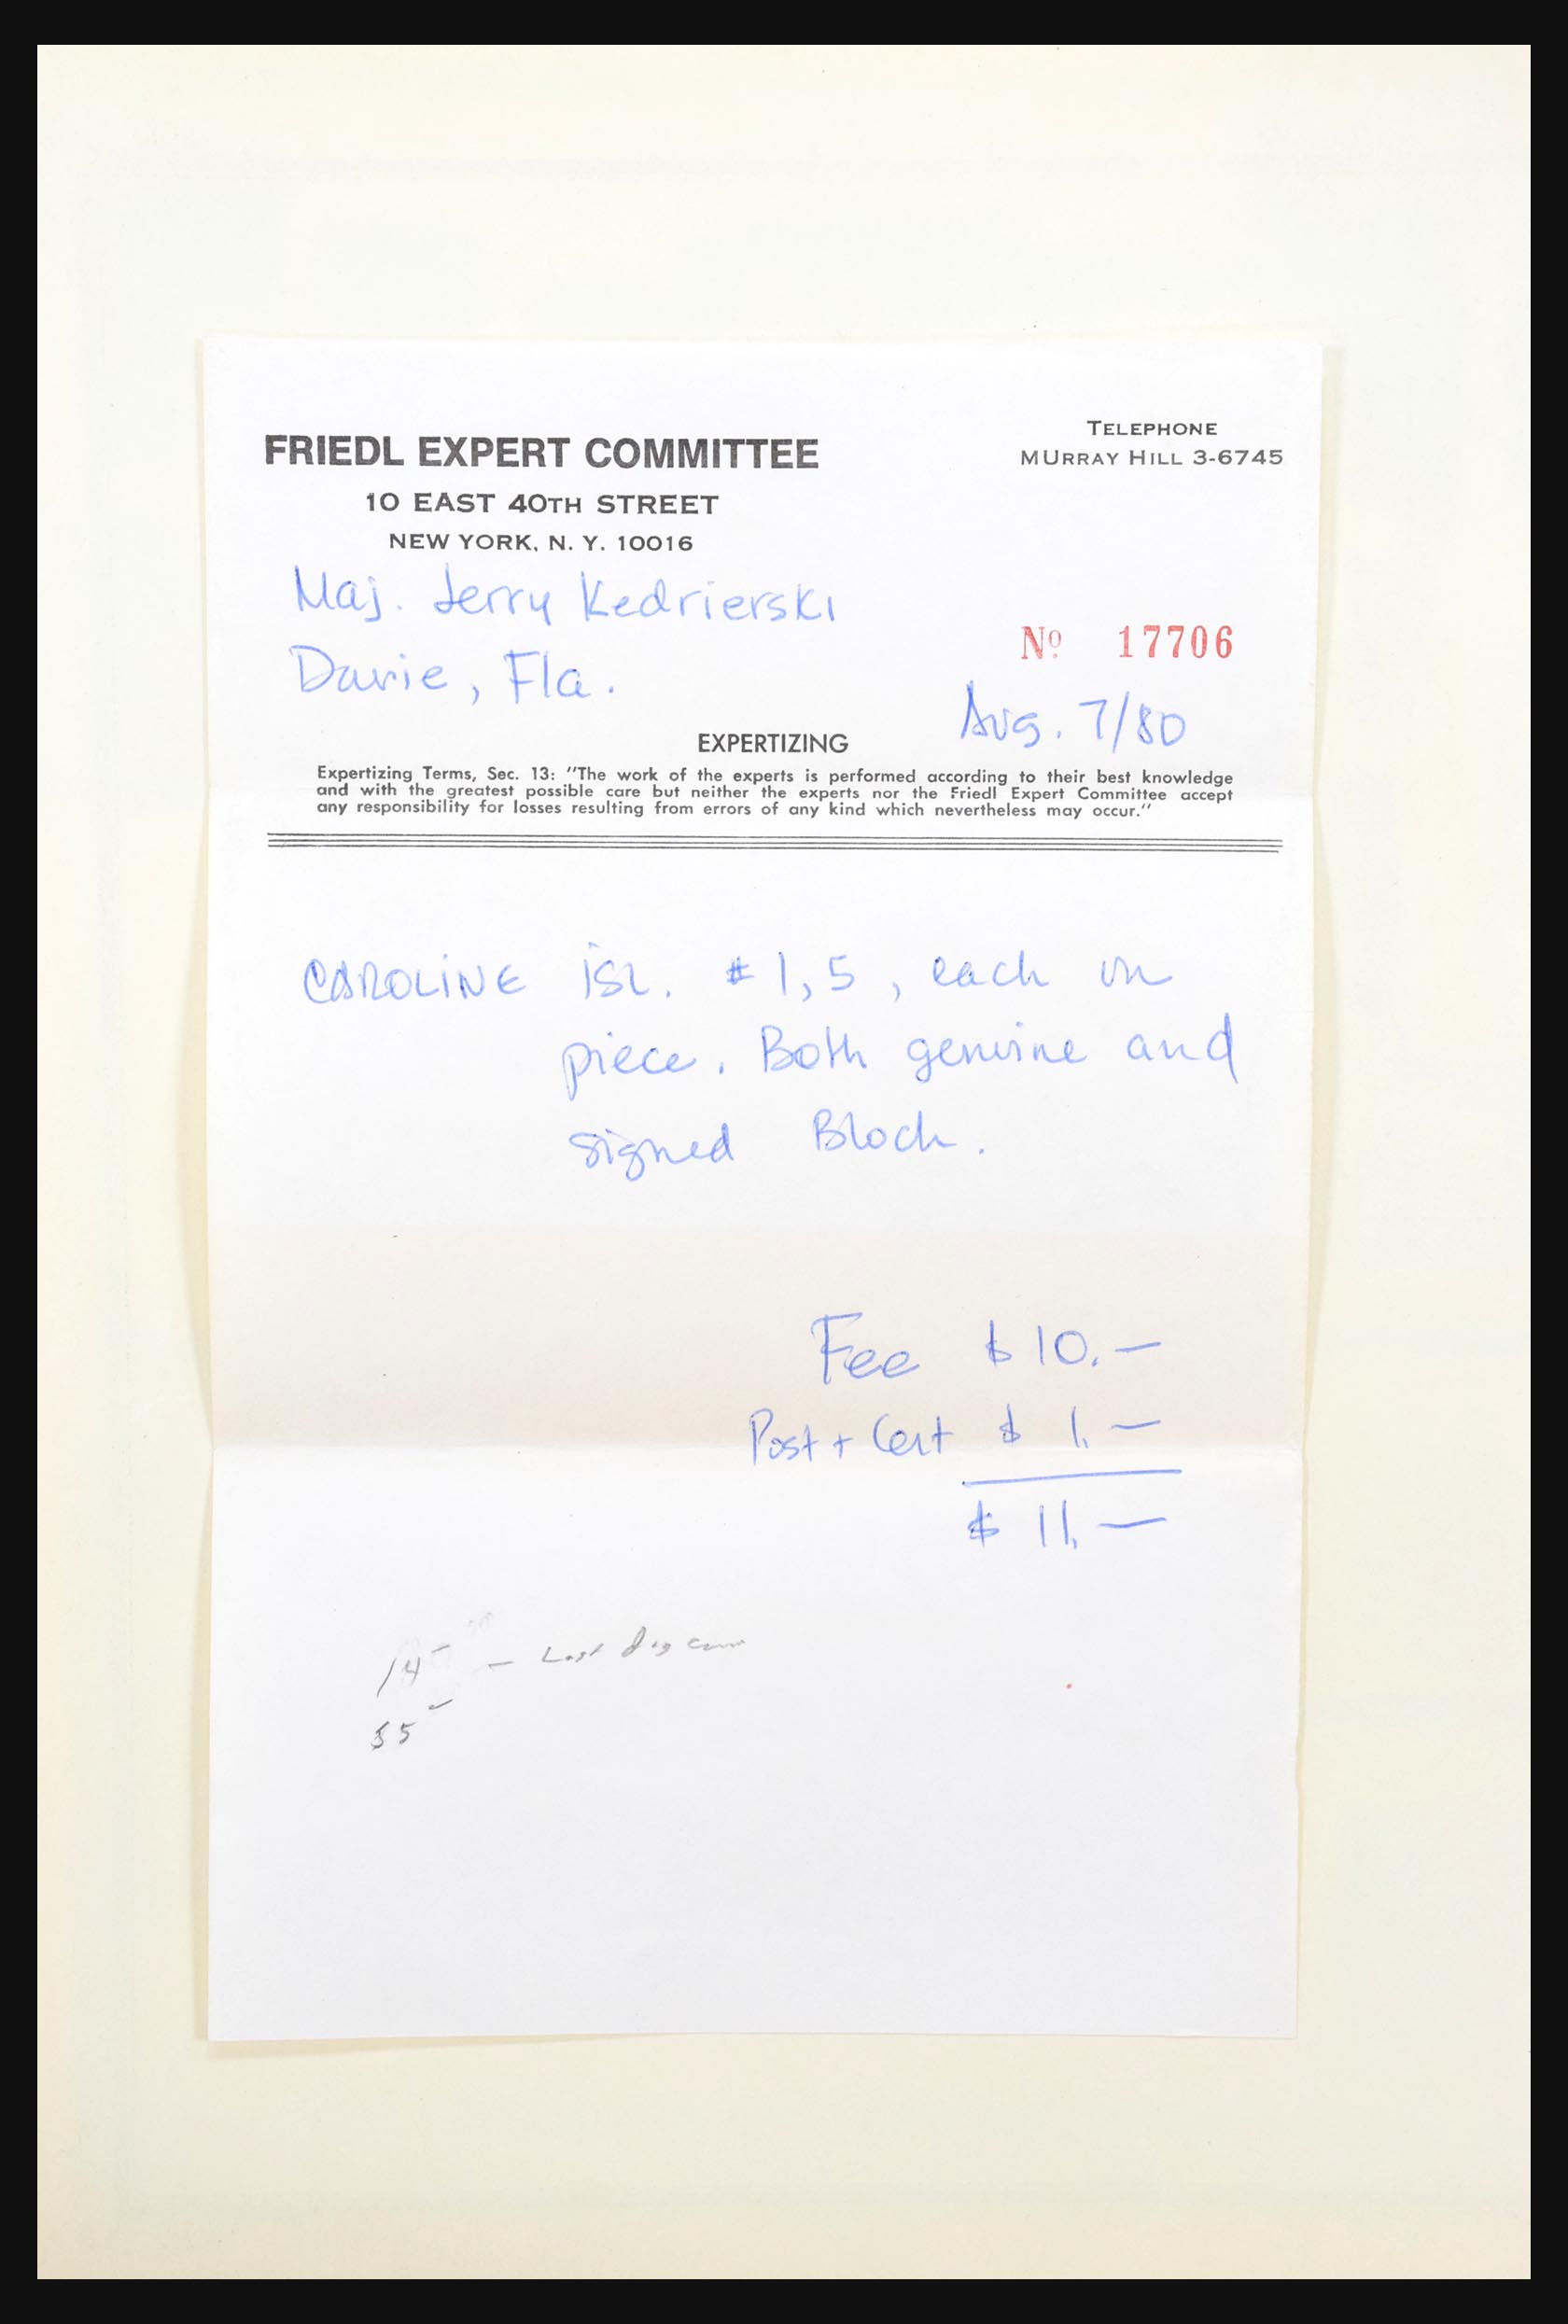 FRIEDL EXPERT COMMITTEE
10 EAST 40TH STREET
NEW YORK, N. Y. 10016
TELEPHONE
MURRAY HILL 3-6745
Maj. Jerry Kedrierski
Davie, Fla.
Nº 17706
Aug. 7/80
EXPERTIZING
Expertizing Terms, Sec. 13: "The work of the experts is performed according to their best knowledge
and with the greatest possible care but neither the experts nor the Friedl Expert Committee accept
any responsibility for losses resulting from errors of any kind which nevertheless may occur."
CAROLINE ISL. # 1, 5, each on
piece. Both genuine and
signed Bloch.
Fee $ 10.—
Post + Cert $ 1.—
$ 11.—
14 — Last day
55